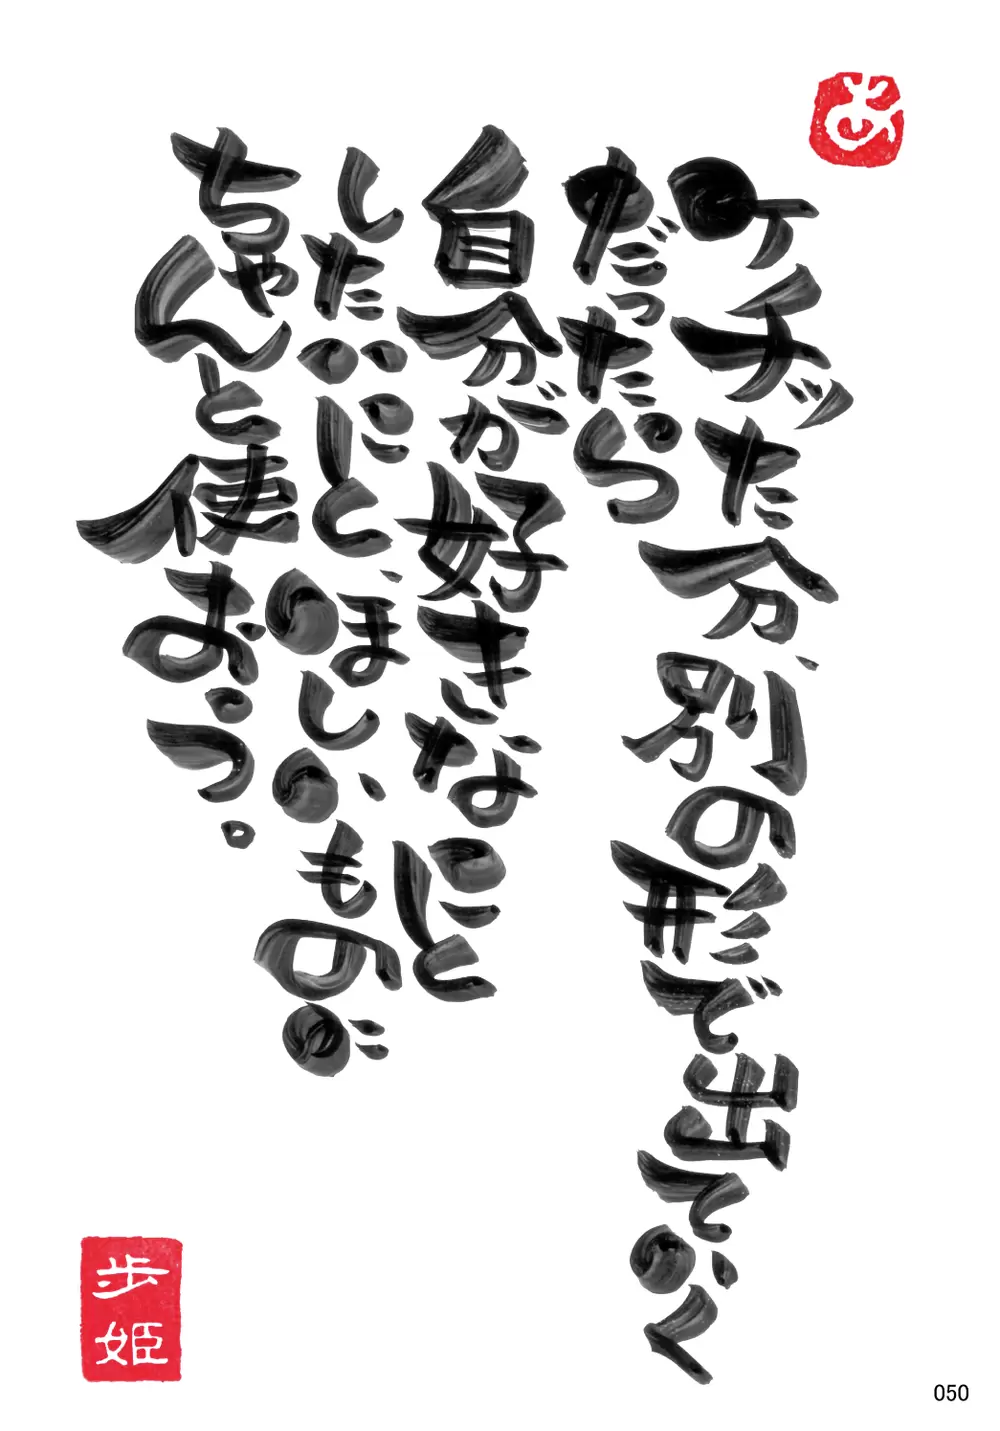 あ
ケチッた分、別の形で出ていく
だったら
自分が好きなこと
したいこと、ほしいものが
ちゃんと使おっっ。
歩姫
050